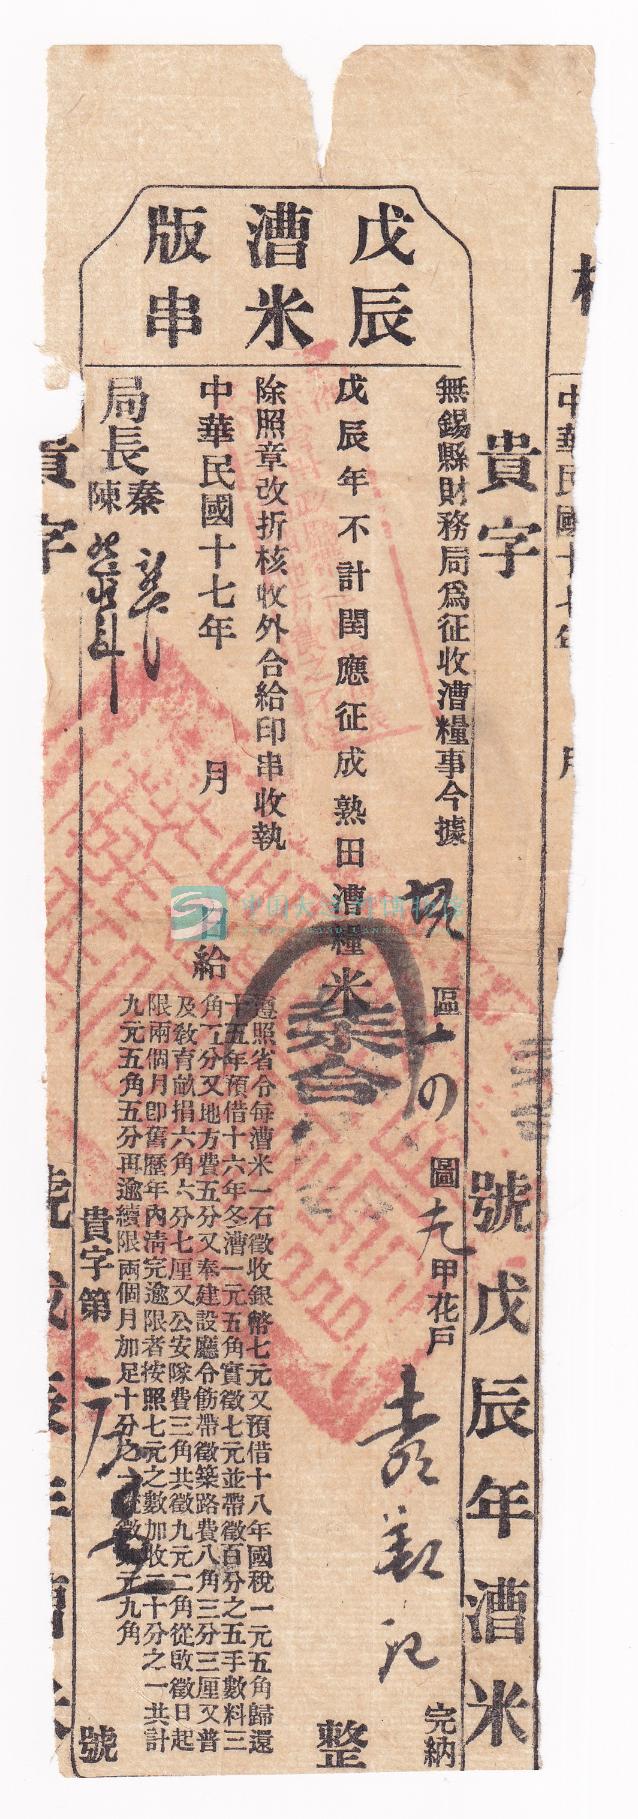 中華民國十七年
月
貴字
號戊辰年漕米
戊辰
漕米
版串
無錫縣財務局爲征收漕糧事今據
區
圖
甲花戶
完納
戊辰年不計閏應征成熟田漕糧米
整
除照章改折核收外合給印串收執
中華民國十七年
月
日給
遵照省令每漕米一石徵收銀幣七元又預借十八年國稅一元五角歸還
十五年預借十六年冬漕一元五角實徵七元並帶徵百分之五手數料三
角五分又地方費五分又奉建設廳令飭帶徵築路費八角三分三厘又普
及敎育畝捐六角六分七厘又公安隊費三角共徵九元二角從啟徵日起
限兩個月卽舊歷年內淸完逾限者按照七元之數加收二十分之一共計
九元五角五分再逾續限兩個月加足十分之一徵元九角
局長
秦
陳
貴字第
號
貴字
號戊辰年漕米
中国大运河博物馆